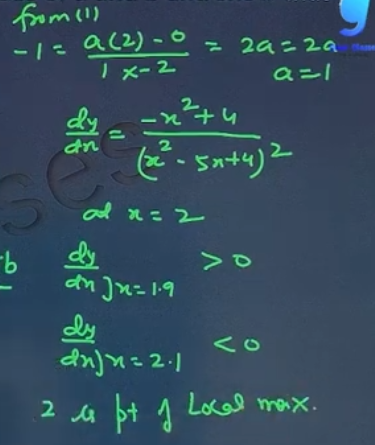 from (1)
-1 = a(2) - 0 / 1 x -2 = 2a = 2a
a = 1
dy/dx = -x² + 4 / (x² - 5x + 4)²
at x = 2
b dy/dx]x=1.9 > 0
dy/dx]x=2.1 < 0
2 is pt of Local max.